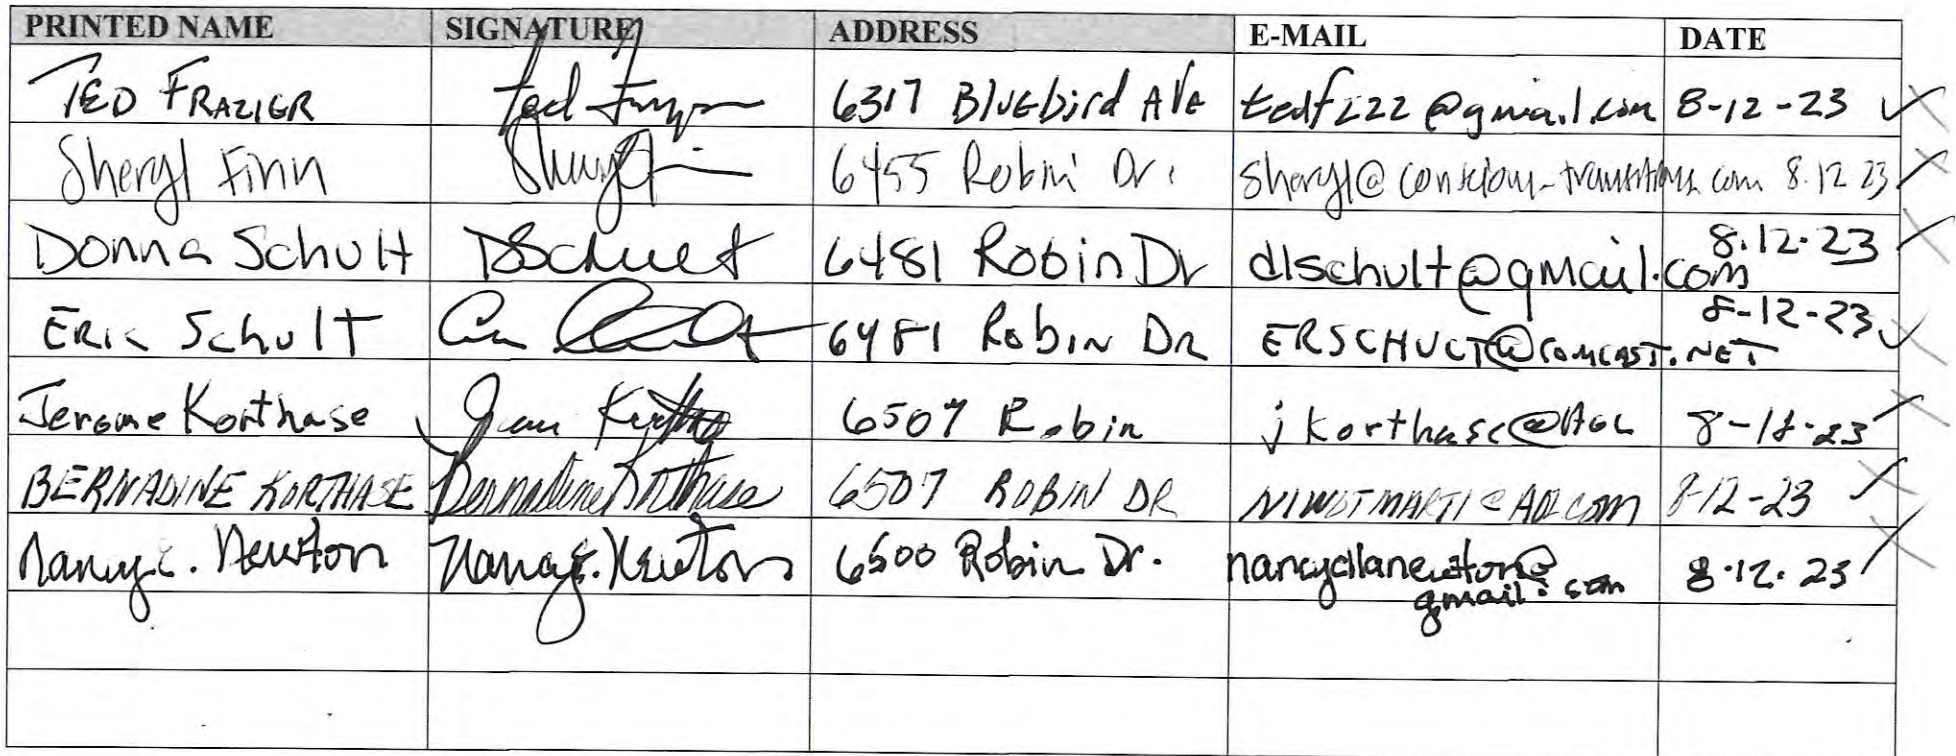 PRINTED NAME SIGNATURE ADDRESS E-MAIL DATE
TED FRAZIER Ted 6317 Bluebird Ave tedfzzz@gmail.com 8-12-23
Sheryl Finn 6455 Robin Dr. sheryl@conscious-transitions.com 8.12.23
Donna Schult DSchult 6481 Robin Dr dlschult@gmail.com 8.12.23
ERIC Schult 6481 Robin DR ERSCHULT@COMCAST.NET 8-12-23
Jerome Korthase 6507 Robin jkorthase@AOL
BERNADINE KORTHASE Bernadine Korthase 6507 ROBIN DR NIWOTMARTI@AOL.COM 8-12-23
Nancy E. Newton Nancy E. Newton 6500 Robin Dr. 8.12.23
gmail.com